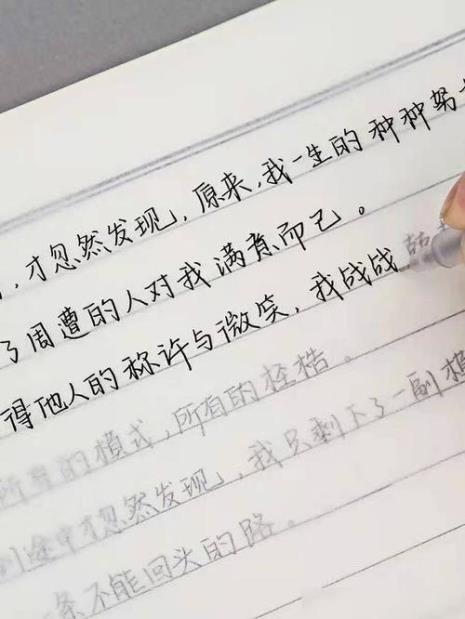 ,才忽然发现,原来,我一生的种种努
了周遭的人对我满意而已。
得他人的称许与微笑,我战战
所有的模式,所有的桎梏。
途中才忽然发现,我只剩下了一副模
一条不能回头的路。